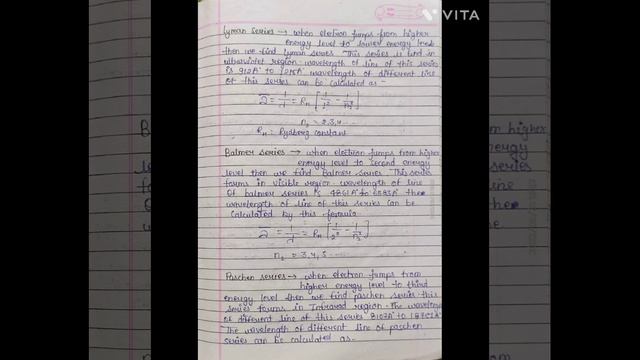 VITA
Lyman series → when electron jumps from higher
energy level to lowest energy level
then we find lyman series. This series is find in
ultraviolet region. wavelength of line of this series
is 912A° to 1215A° wavelength of different line
of this series can be calculated as -
ν̅ = 1/λ = R_H [1/1² - 1/n₂²]
n₂ = 2,3,4 ...
R_H = Rydberg constant
Balmer series → when electron jumps from higher
energy level to second energy
level then we find Balmer series. This series
forms in visible region. wavelength of line
of balmer series is A° to A° the
wavelength of line of this series can be
calculated by this formula
ν̅ = 1/λ = R_H [1/2² - 1/n₂²]
n₂ = 3,4,5 ...
Paschen series → when electron jumps from
higher energy level to third
energy level then we find paschen series. this
series forms in Infrared region. The wavelength
of different line of this series A° to A°
The wavelength of different line of paschen
series can be calculated as -